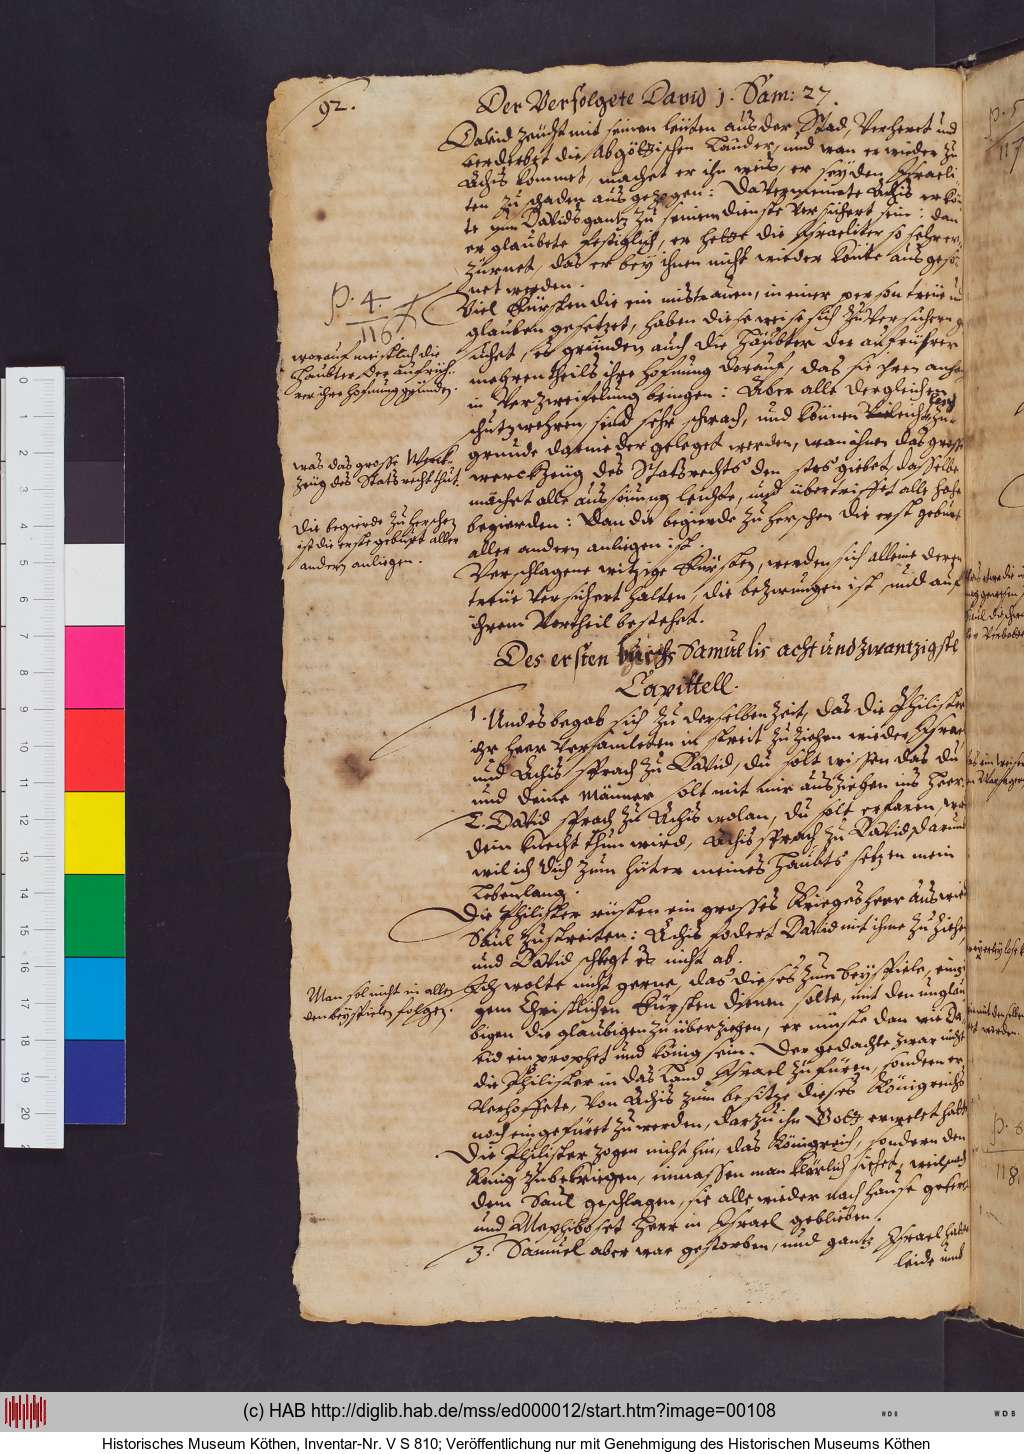 92.
Der Verfolgete David 1. Sam: 27.
David zeucht mit seinen leüten aus der Stad, Verheret und
verderbet die Abgöttischen Länder, und wan er wieder zu
Achis kommet, machet er ihn weis, er sey den Israeli
ten zu schaden ausgezogen: Da vermeinete Achis er kön
te nun Davids gantz zu seinem dienste versichert sein: dan
er glaubete festiglich, er hette die Israeliter so sehr er
zürnet, das er bey ihnen nicht wieder könte ausgesö
net werden.
Viel Fürsten die ein mistrauen, in einer person treüe und
glauben gesetzet, haben diese weise sich zu versichern g
sucht, es gründen auch die Häubter der aufrührer
mehrentheils ihre hofnung darauf, das sie ihren anha
in Verzweifelung bringen: Aber alle dergleichen
schutzwehren, sind sehr schwach, und können leicht zu
grunde darnieder geleget werden, wan ihnen das grosse
werckzeüg des Statsrechts den stos giebet, dasselbe
machet alle aussönung leichte, und übertrifft alle hohe
begierden: Dan die begierde zu herschen die erste gebürt
aller andern anliegen ist.
Verschlagene witzige Fürsten, werden sich alleine deren
treüe versichert halten, die bezwungen ist, und auf
ihrem Vortheil bestehet.
P. 4.
116
worauf meistlich die
Häubter der aufrüh-
rer ihre hofnung gründen.
was das grosse Werck-
zeüg des Statsrecht thut.
Die begierde zu herschen
ist die erste gebürt aller
andern anliegen.
Des ersten buchs Samuelis acht und zwantzigste
Capittell.
1. Und es begab sich zu derselben Zeit, das die Philister
ihr heer versamleten in streit zu ziehen wieder Israel
und Achis sprach zu David, du solt wissen das du
und deine Männer solt mit mir ausziehen ins Heer.
2. David sprach zu Achis wolan, du solt erfaren, was
dein knecht thun wird, Achis sprach zu David, darumb
wil ich dich zum hüter meines Haubts setzen mein
Lebenlang.
Die Philister rüsten ein grosses Kriegesheer aus wieder
Saul zustreiten: Achis fodert David mit ihme zu ziehen,
und David schlegt es nicht ab.
Ich wolte nicht gerne, das dieses zum beyspiele, eini
gem Christlichen Fürsten dienen solte, mit den unglau
bigen die glaubigen zu überziehen, er müste dan wie Da
vid ein prophet und könig sein. Der gedachte zwar nicht
die Philister in das Land Israel zu füren, sondern er
verhoffete, von Achis zum besitze dieses Königreichs
noch eingefüret zu werden, darzu ihn Gott erwelet hatte
Die Philister zogen nicht hin, das Königreich, sondern den
König zubekriegen, inmassen man klärlich siehet, weil nach
dem Saul geschlagen, sie alle wieder nach hause gekert
und Mephiboset Herr in Israel geblieben.
3. Samuel aber war gestorben, und gantz Israel hatte
leide umb
Man sol nicht in allen
den beyspielen folgen.
P. 6
118.
0
1
2
3
4
5
6
7
8
9
10
11
12
13
14
15
16
17
18
19
20
(c) HAB http://diglib.hab.de/mss/ed000012/start.htm?image=00108
WDB
WDB
Historisches Museum Köthen, Inventar-Nr. V S 810; Veröffentlichung nur mit Genehmigung des Historischen Museums Köthen